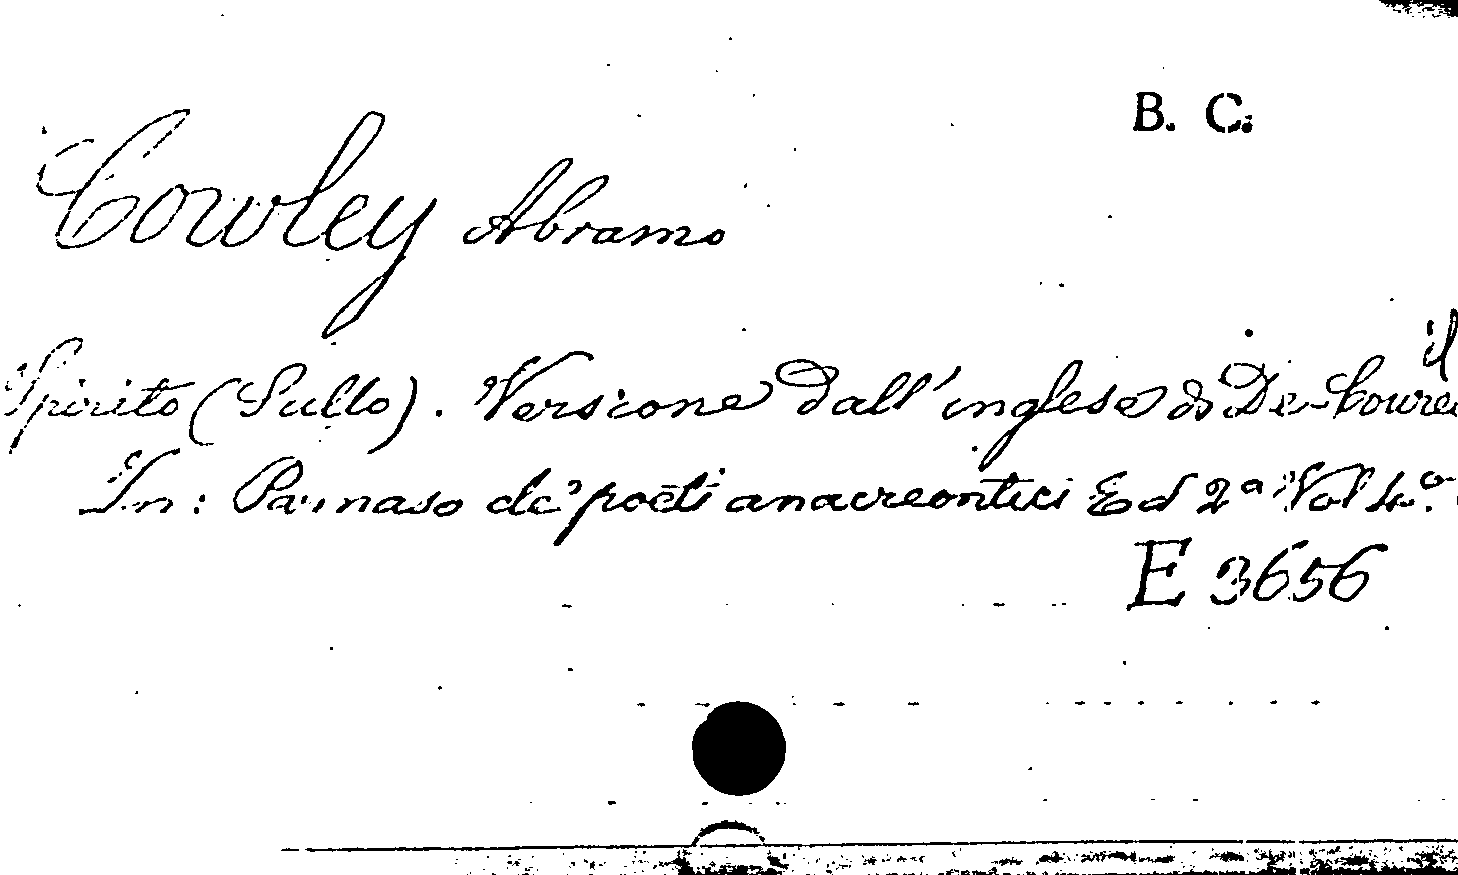 B. C.
Cowley Abramo
il
Spirito (Sullo). Versione dall'inglese di De-Coure
In: Parnaso de' poeti anacreontici Ed 2ª Vol 4.º
E 3656